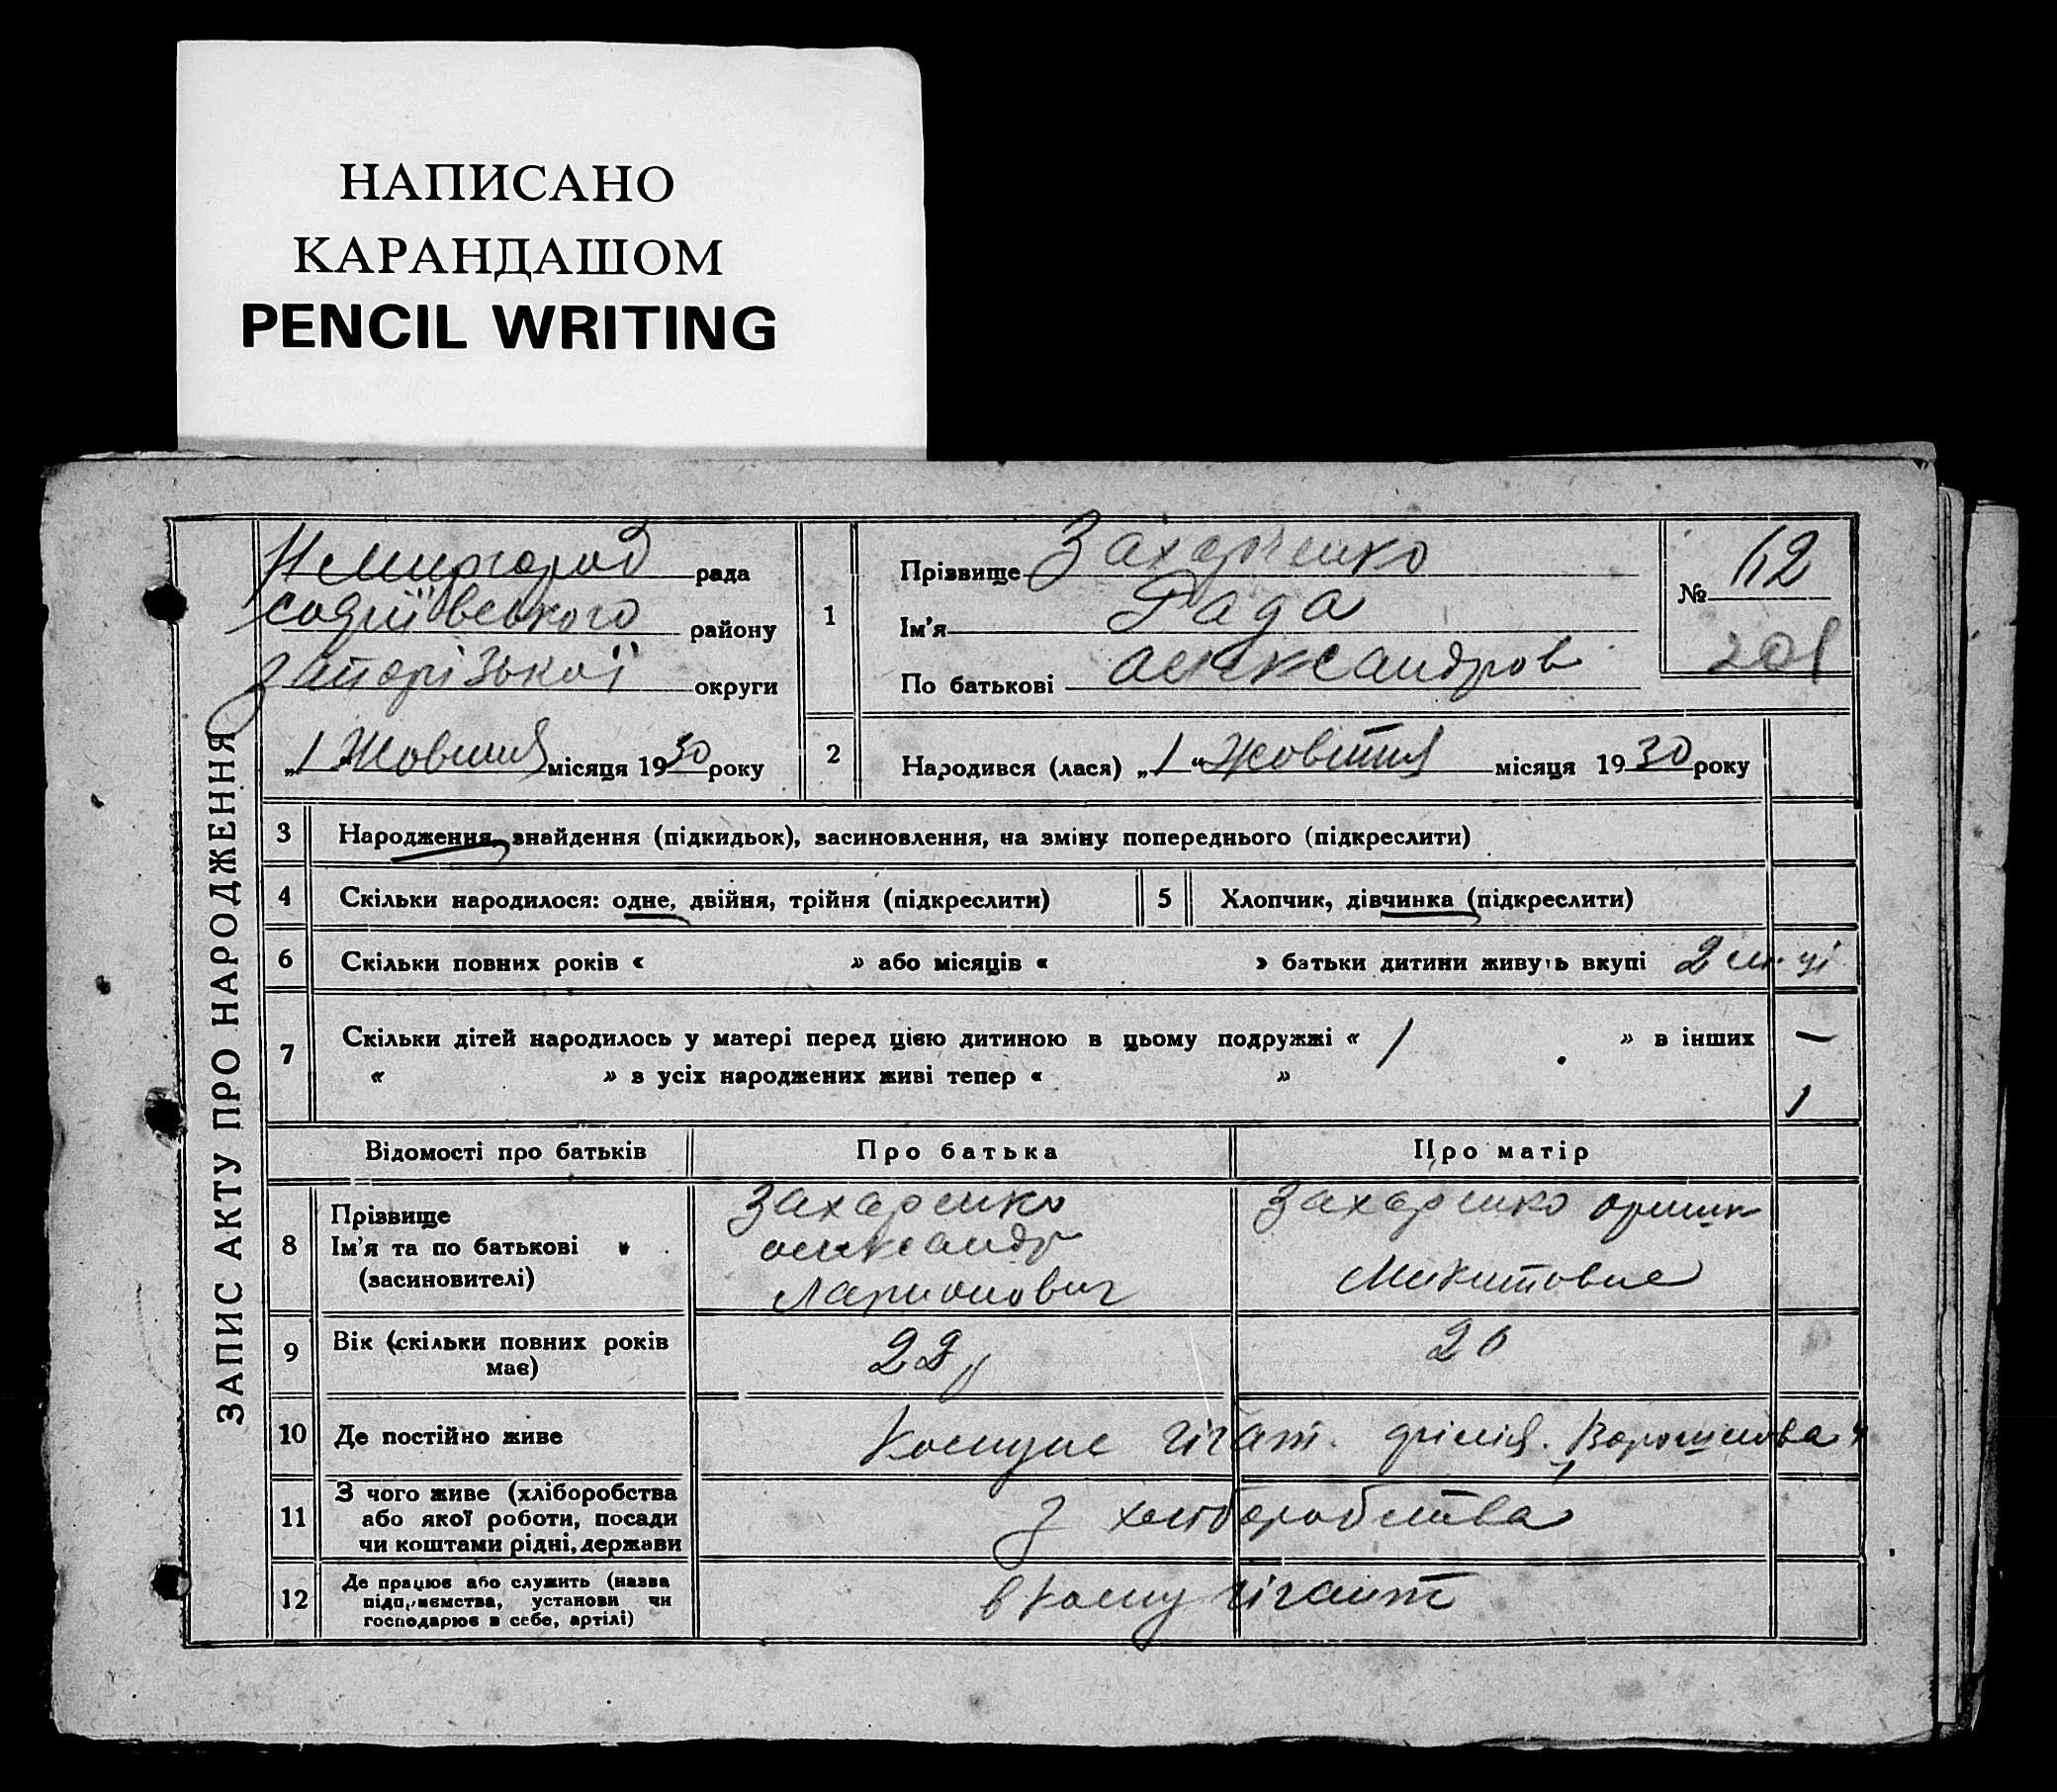 НАПИСАНО
КАРАНДАШОМ
PENCIL WRITING
ЗАПИС АКТУ ПРО НАРОДЖЕННЯ
рада
району
Запорізької округи
„1 Жовтня місяця 1930 року
1
Прізвище Захарченко
Ім'я Рада
По батькові Олександров
№ 62
201
2
Народився (лася) „1“ Жовтня місяця 1930 року
3 Народження, знайдення (підкидьок), засиновлення, на зміну попереднього (підкреслити)
4 Скільки народилося: одне, двійня, трійня (підкреслити)
5 Хлопчик, дівчинка (підкреслити)
6 Скільки повних років « » або місяців « » батьки дитини живуть вкупі 2
7 Скільки дітей народилось у матері перед цією дитиною в цьому подружжі « 1 » в інших —
« » з усіх народжених живі тепер « » 1
Відомості про батьків Про батька Про матір
8 Прізвище
Ім'я та по батькові
(засиновителі)
Захаренко
олександр
Ларионович
Захаренко
Микитовна
9 Вік (скільки повних років
має)
22
10 Де постійно живе
гігант. Ворошилова
11 З чого живе (хліборобства
або якої роботи, посади
чи коштами рідні, держави
з хліборобства
12 Де працює або служить (назва
підприємства, установи чи
господарює в себе, артілі)
в кому гігант